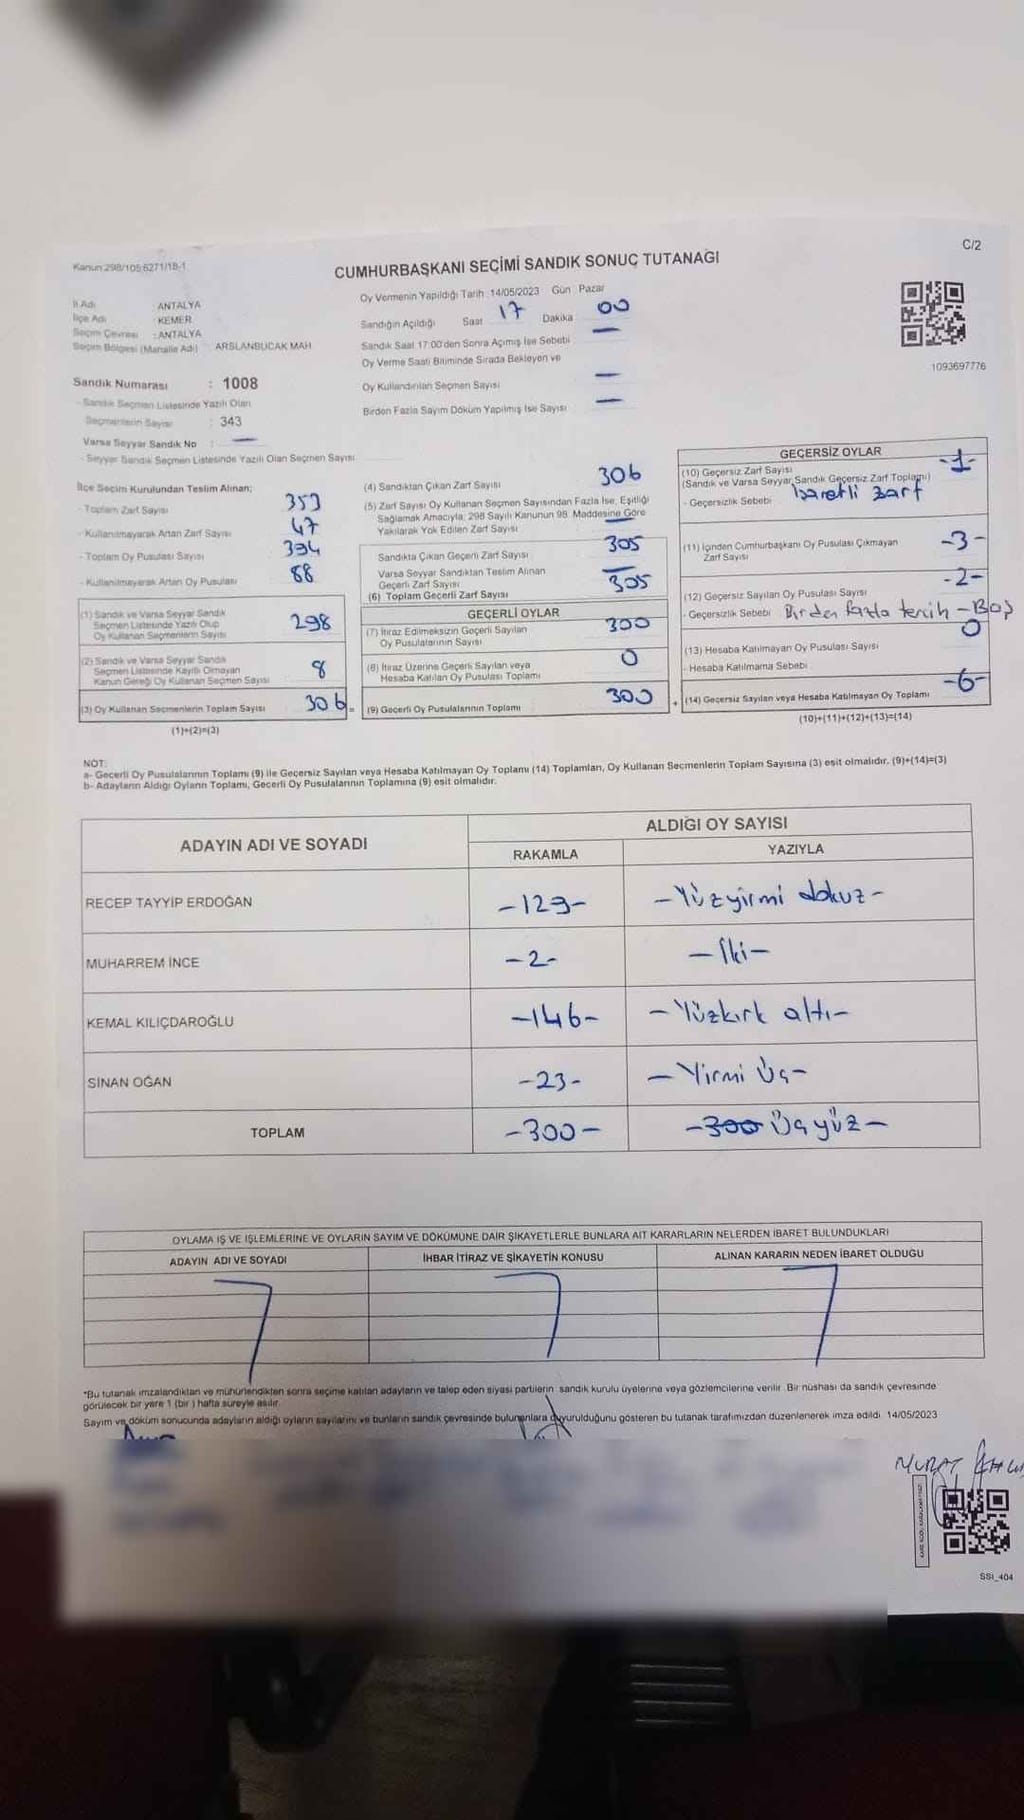 Kanun:298/105;6271/18-1
C/2
CUMHURBAŞKANI SEÇİMİ SANDIK SONUÇ TUTANAĞI
İl Adı : ANTALYA
İlçe Adı : KEMER
Seçim Çevresi : ANTALYA
Seçim Bölgesi (Mahalle Adı) ARSLANBUCAK MAH
Sandık Numarası : 1008
- Sandık Seçmen Listesinde Yazılı Olan
Seçmenlerin Sayısı : 343
Varsa Seyyar Sandık No : —
- Seyyar Sandık Seçmen Listesinde Yazılı Olan Seçmen Sayısı
Oy Vermenin Yapıldığı Tarih :14/05/2023 Gün Pazar
Sandığın Açıldığı Saat 17 Dakika 00
Sandık Saat 17:00'den Sonra Açılmış İse Sebebi —
Oy Verme Saati Bitiminde Sırada Bekleyen ve
Oy Kullandırılan Seçmen Sayısı —
Birden Fazla Sayım Döküm Yapılmış İse Sayısı —
1093697776
İlçe Seçim Kurulundan Teslim Alınan;
- Toplam Zarf Sayısı 353
- Kullanılmayarak Artan Zarf Sayısı 47
- Toplam Oy Pusulası Sayısı 394
- Kullanılmayarak Artan Oy Pusulası 88
(1) Sandık ve Varsa Seyyar Sandık
Seçmen Listesinde Yazılı Olup
Oy Kullanan Seçmenlerin Sayısı 298
(2) Sandık ve Varsa Seyyar Sandık
Seçmen Listesinde Kayıtlı Olmayan
Kanun Gereği Oy Kullanan Seçmen Sayısı 8
(3) Oy Kullanan Seçmenlerin Toplam Sayısı 306 =
(1)+(2)=(3)
(4) Sandıktan Çıkan Zarf Sayısı 306
(5) Zarf Sayısı Oy Kullanan Seçmen Sayısından Fazla İse, Eşitliği
Sağlamak Amacıyla, 298 Sayılı Kanunun 98. Maddesine Göre
Yakılarak Yok Edilen Zarf Sayısı —
Sandıkta Çıkan Geçerli Zarf Sayısı 305
Varsa Seyyar Sandıktan Teslim Alınan
Geçerli Zarf Sayısı —
(6) Toplam Geçerli Zarf Sayısı 305
GEÇERLİ OYLAR
(7) İtiraz Edilmeksizin Geçerli Sayılan
Oy Pusulalarının Sayısı 300
(8) İtiraz Üzerine Geçerli Sayılan veya
Hesaba Katılan Oy Pusulası Toplamı 0
(9) Geçerli Oy Pusulalarının Toplamı 300 +
GEÇERSİZ OYLAR
(10) Geçersiz Zarf Sayısı -1-
(Sandık ve Varsa Seyyar Sandık Geçersiz Zarf Toplamı)
- Geçersizlik Sebebi İşaretli zarf
(11) İçinden Cumhurbaşkanı Oy Pusulası Çıkmayan
Zarf Sayısı -3-
(12) Geçersiz Sayılan Oy Pusulası Sayısı -2-
- Geçersizlik Sebebi Birden fazla tercih - Boş
(13) Hesaba Katılmayan Oy Pusulası Sayısı 0
- Hesaba Katılmama Sebebi
(14) Geçersiz Sayılan veya Hesaba Katılmayan Oy Toplamı -6-
(10)+(11)+(12)+(13)=(14)
NOT:
a- Geçerli Oy Pusulalarının Toplamı (9) ile Geçersiz Sayılan veya Hesaba Katılmayan Oy Toplamı (14) Toplamları, Oy Kullanan Seçmenlerin Toplam Sayısına (3) eşit olmalıdır. (9)+(14)=(3)
b- Adayların Aldığı Oyların Toplamı, Geçerli Oy Pusulalarının Toplamına (9) eşit olmalıdır.
ADAYIN ADI VE SOYADI
ALDIĞI OY SAYISI
RAKAMLA YAZIYLA
RECEP TAYYİP ERDOĞAN -129- -Yüzyirmi dokuz-
MUHARREM İNCE -2- -İki-
KEMAL KILIÇDAROĞLU -146- -Yüzkırk altı-
SİNAN OĞAN -23- -Yirmi Üç-
TOPLAM -300- -300 Üçyüz-
OYLAMA İŞ VE İŞLEMLERİNE VE OYLARIN SAYIM VE DÖKÜMÜNE DAİR ŞİKAYETLERLE BUNLARA AİT KARARLARIN NELERDEN İBARET BULUNDUKLARI
ADAYIN ADI VE SOYADI İHBAR İTİRAZ VE ŞİKAYETİN KONUSU ALINAN KARARIN NEDEN İBARET OLDUĞU
*Bu tutanak imzalandıktan ve mühürlendikten sonra seçime katılan adayların ve talep eden siyasi partilerin sandık kurulu üyelerine veya gözlemcilerine verilir. Bir nüshası da sandık çevresinde
görülecek bir yere 1 (bir ) hafta süreyle asılır.
Sayım ve döküm sonucunda adayların aldığı oyların sayılarını ve bunların sandık çevresinde bulunanlara duyurulduğunu gösteren bu tutanak tarafımızdan düzenlenerek imza edildi. 14/05/2023
MURAT
SSI_404